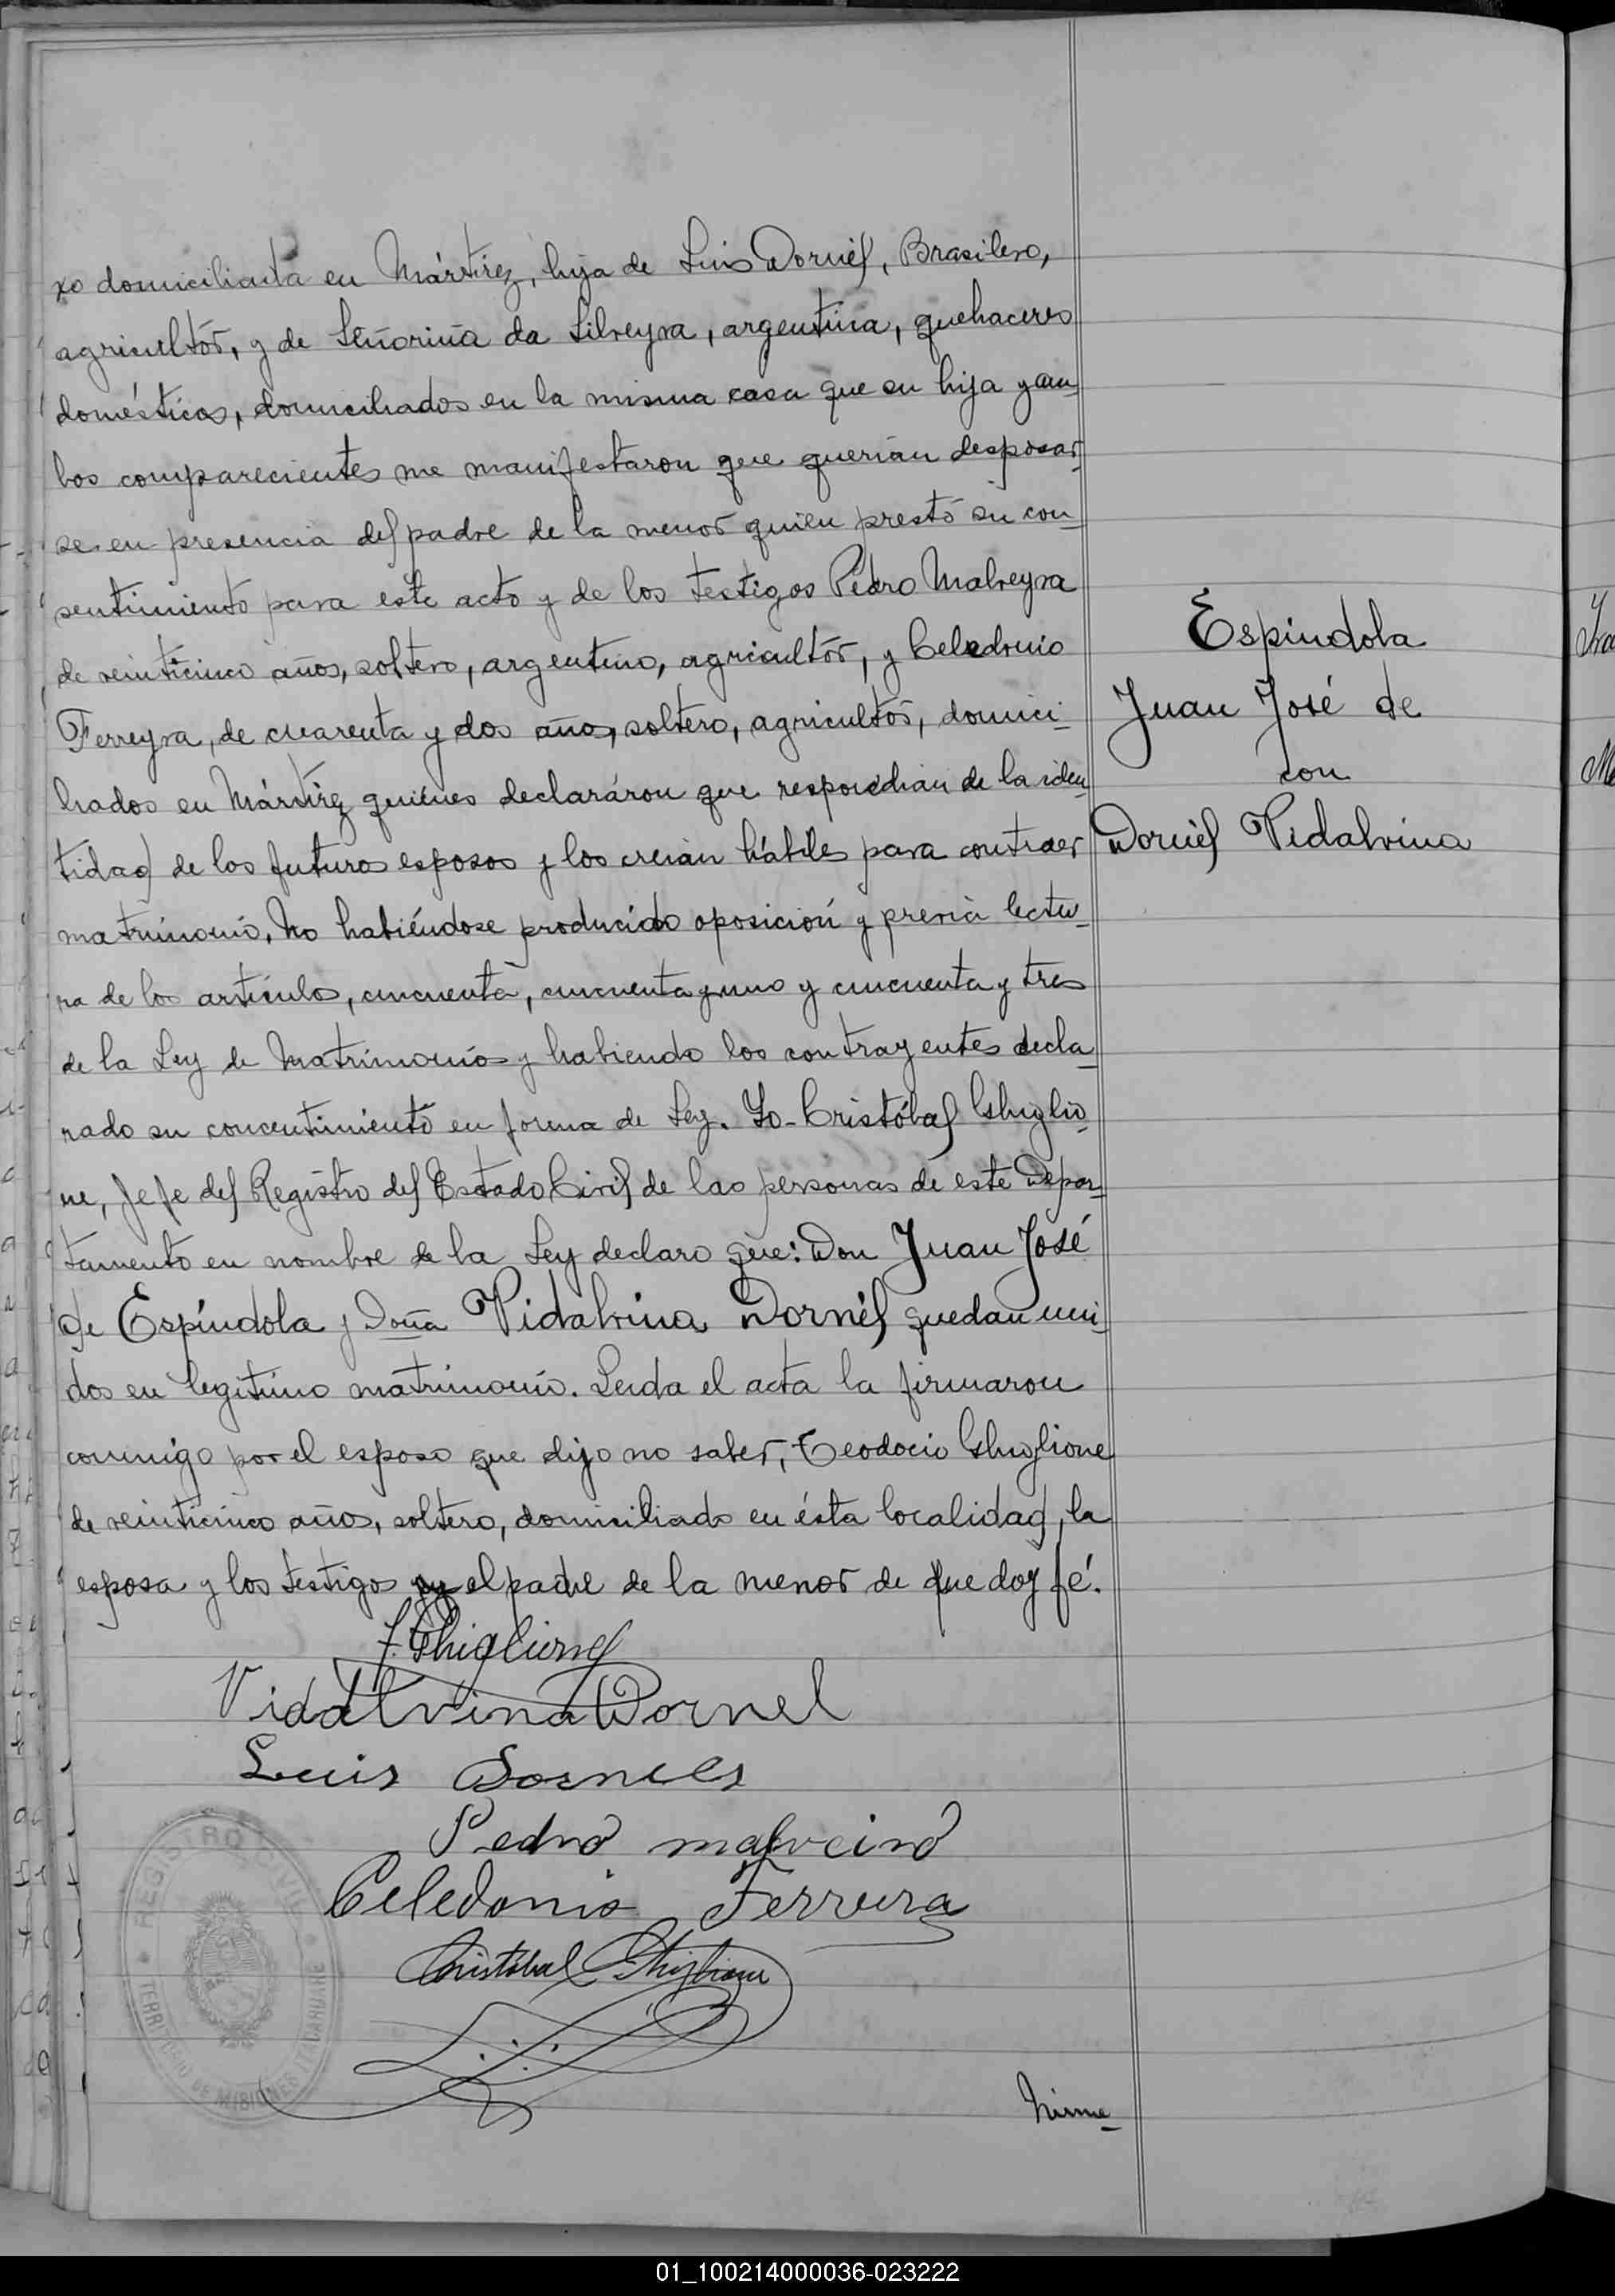 xo domiciliada en Mártirez, hija de Luis Dornél, Brasilero,
agricultór, y de Señoriña da Silveyra, argentina, quehaceres
domésticos, domiciliados en la misma casa que su hija y am-
bos comparecientes me manifestaron que querian desposar-
se en presencia del padre de la menor quién prestó su con-
sentimiento para este acto y de los testigos Pedro Malveyra
de veinticinco años, soltero, argentino, agricultór, y Celedonio
Ferreyra, de cuarenta y dos años, soltero, agricultór, domici-
liados en Mártirez quiénes declaráron que respondian de la iden-
tidad de los futuros esposos y los creian hábiles para contraer
matrimonio. No habiéndose producido oposición y previa lectu-
ra de los artículos, cincuenta, cincuenta y uno y cincuenta y tres
de la Ley de Matrimonio y habiendo los contrayentes decla-
rado su concentimiento en forma de Ley. Yo-Cristóbal Ghiglio-
ne, Jefe del Registro del Estado Civil de las personas de este Depar-
tamento en nombre de la Ley declaro que: Don Juan José
de Espíndola y Doña Vidalvina Dornél quedan uni-
dos en legitimo matrimonio. Leida el acta la firmaron
conmigo por el esposo que dijo no saber, Teodocio Ghiglione
de veinticinco años, soltero, domiciliado en ésta localidad, la
esposa y los testigos el padre de la menor de que doy fé.
Espindola
Juan José de
con
Dornél Vidalvina
T. Ghiglione
Vidalvina Dornel
Luis Dorneles
Pedro malveira
Celedonio Ferreira
Cristóbal Ghiglione
REGISTRO CIVIL
TERRITORIO DE MISIONES ITACARUARE
Núme-
01_100214000036-023222